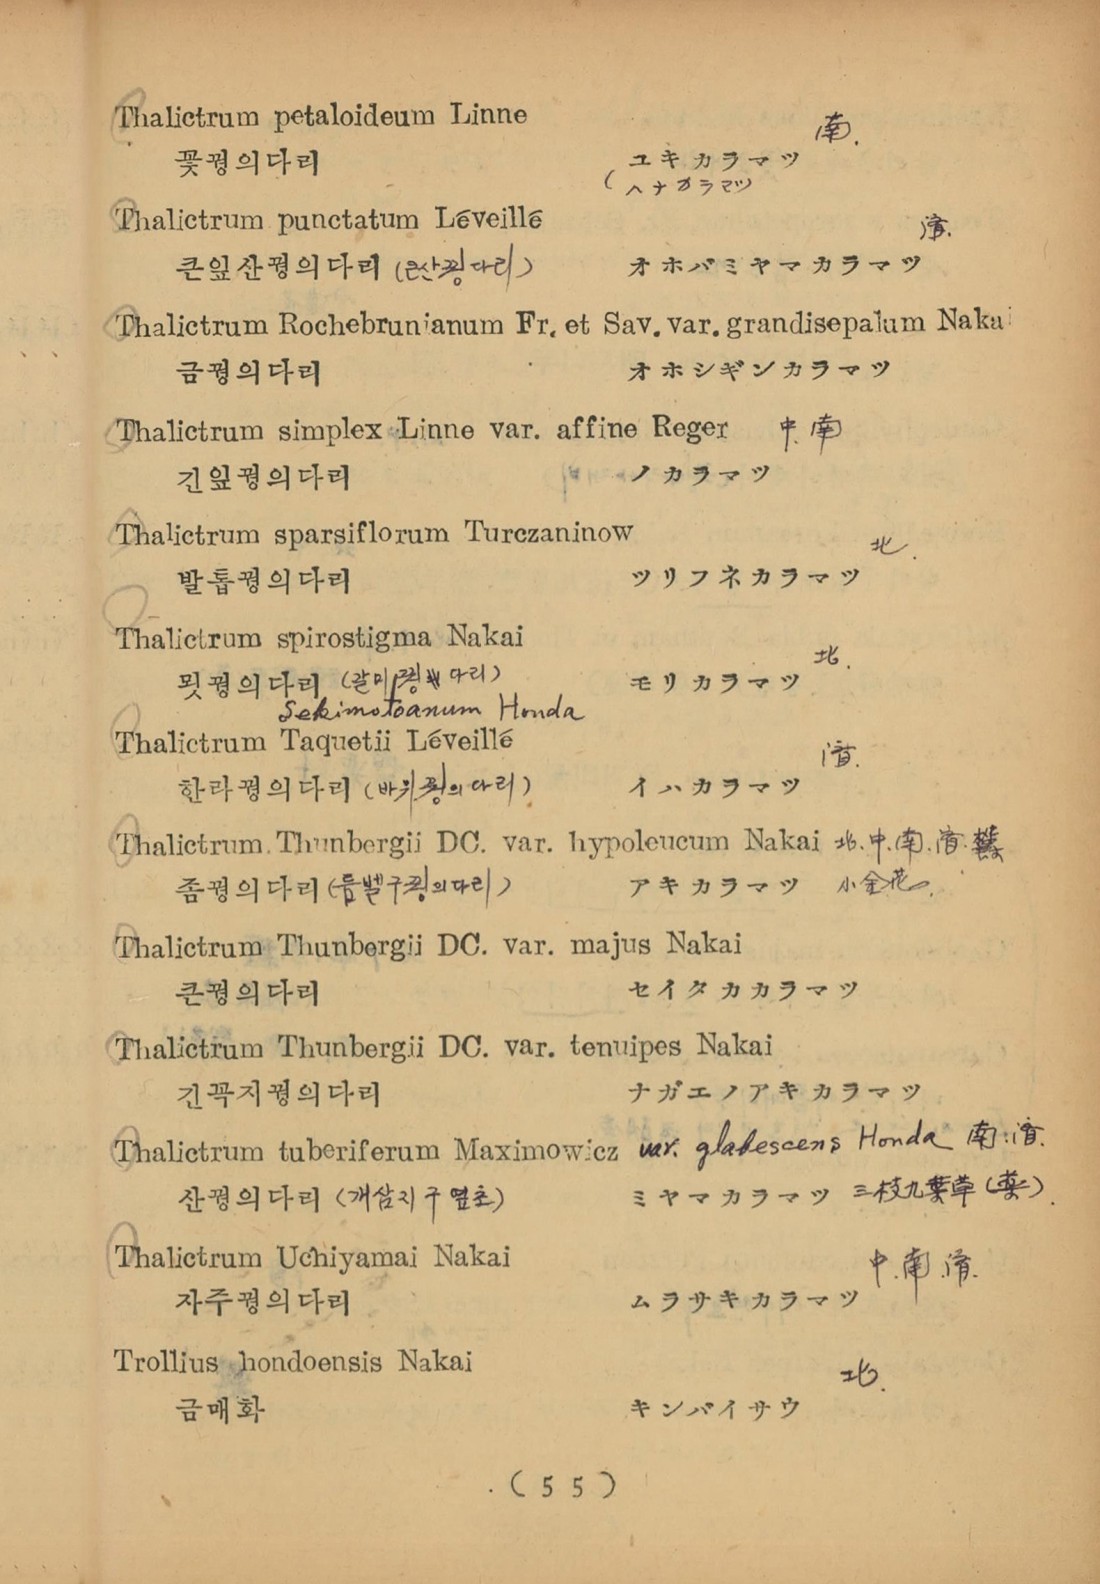 Thalictrum petaloideum Linne 南.
꽃꿩의다리 ユキカラマツ
(ハナカラマツ
Thalictrum punctatum Léveillé
큰잎산꿩의다리 オホバミヤマカラマツ
Thalictrum Rochebrunianum Fr. et Sav. var. grandisepalum Nakai
금꿩의다리 オホシギンカラマツ
Thalictrum simplex Linne var. affine Reger 中. 南
긴잎꿩의다리 ノカラマツ
Thalictrum sparsiflorum Turczaninow 北.
발톱꿩의다리 ツリフネカラマツ
Thalictrum spirostigma Nakai 北.
묏꿩의다리 モリカラマツ
Sekimotoanum Honda
Thalictrum Taquetii Léveillé
한라꿩의다리 (바위꿩의다리) イハカラマツ
Thalictrum Thunbergii DC. var. hypoleucum Nakai 北.中.南.
좀꿩의다리 アキカラマツ 小金花.
Thalictrum Thunbergii DC. var. majus Nakai
큰꿩의다리 セイタカカラマツ
Thalictrum Thunbergii DC. var. tenuipes Nakai
긴꼭지꿩의다리 ナガエノアキカラマツ
Thalictrum tuberiferum Maximowicz var. glabescens Honda 南.
산꿩의다리 (개삼지구엽초) ミヤマカラマツ 三枝九葉草(薬).
Thalictrum Uchiyamai Nakai 中.南.
자주꿩의다리 ムラサキカラマツ
Trollius hondoensis Nakai 北.
금매화 キンバイサウ
(55)